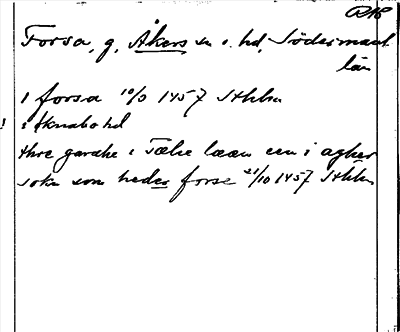 RAP
Forsa, g, Åkers sn o. hd, Södermanl.
län
i forsa 10/0 1457 Sthlm
! i Aknabo hd
thre gardhe i Tælie lææn een i agher
sokn som heder forse 21/10 1457 Sthlm